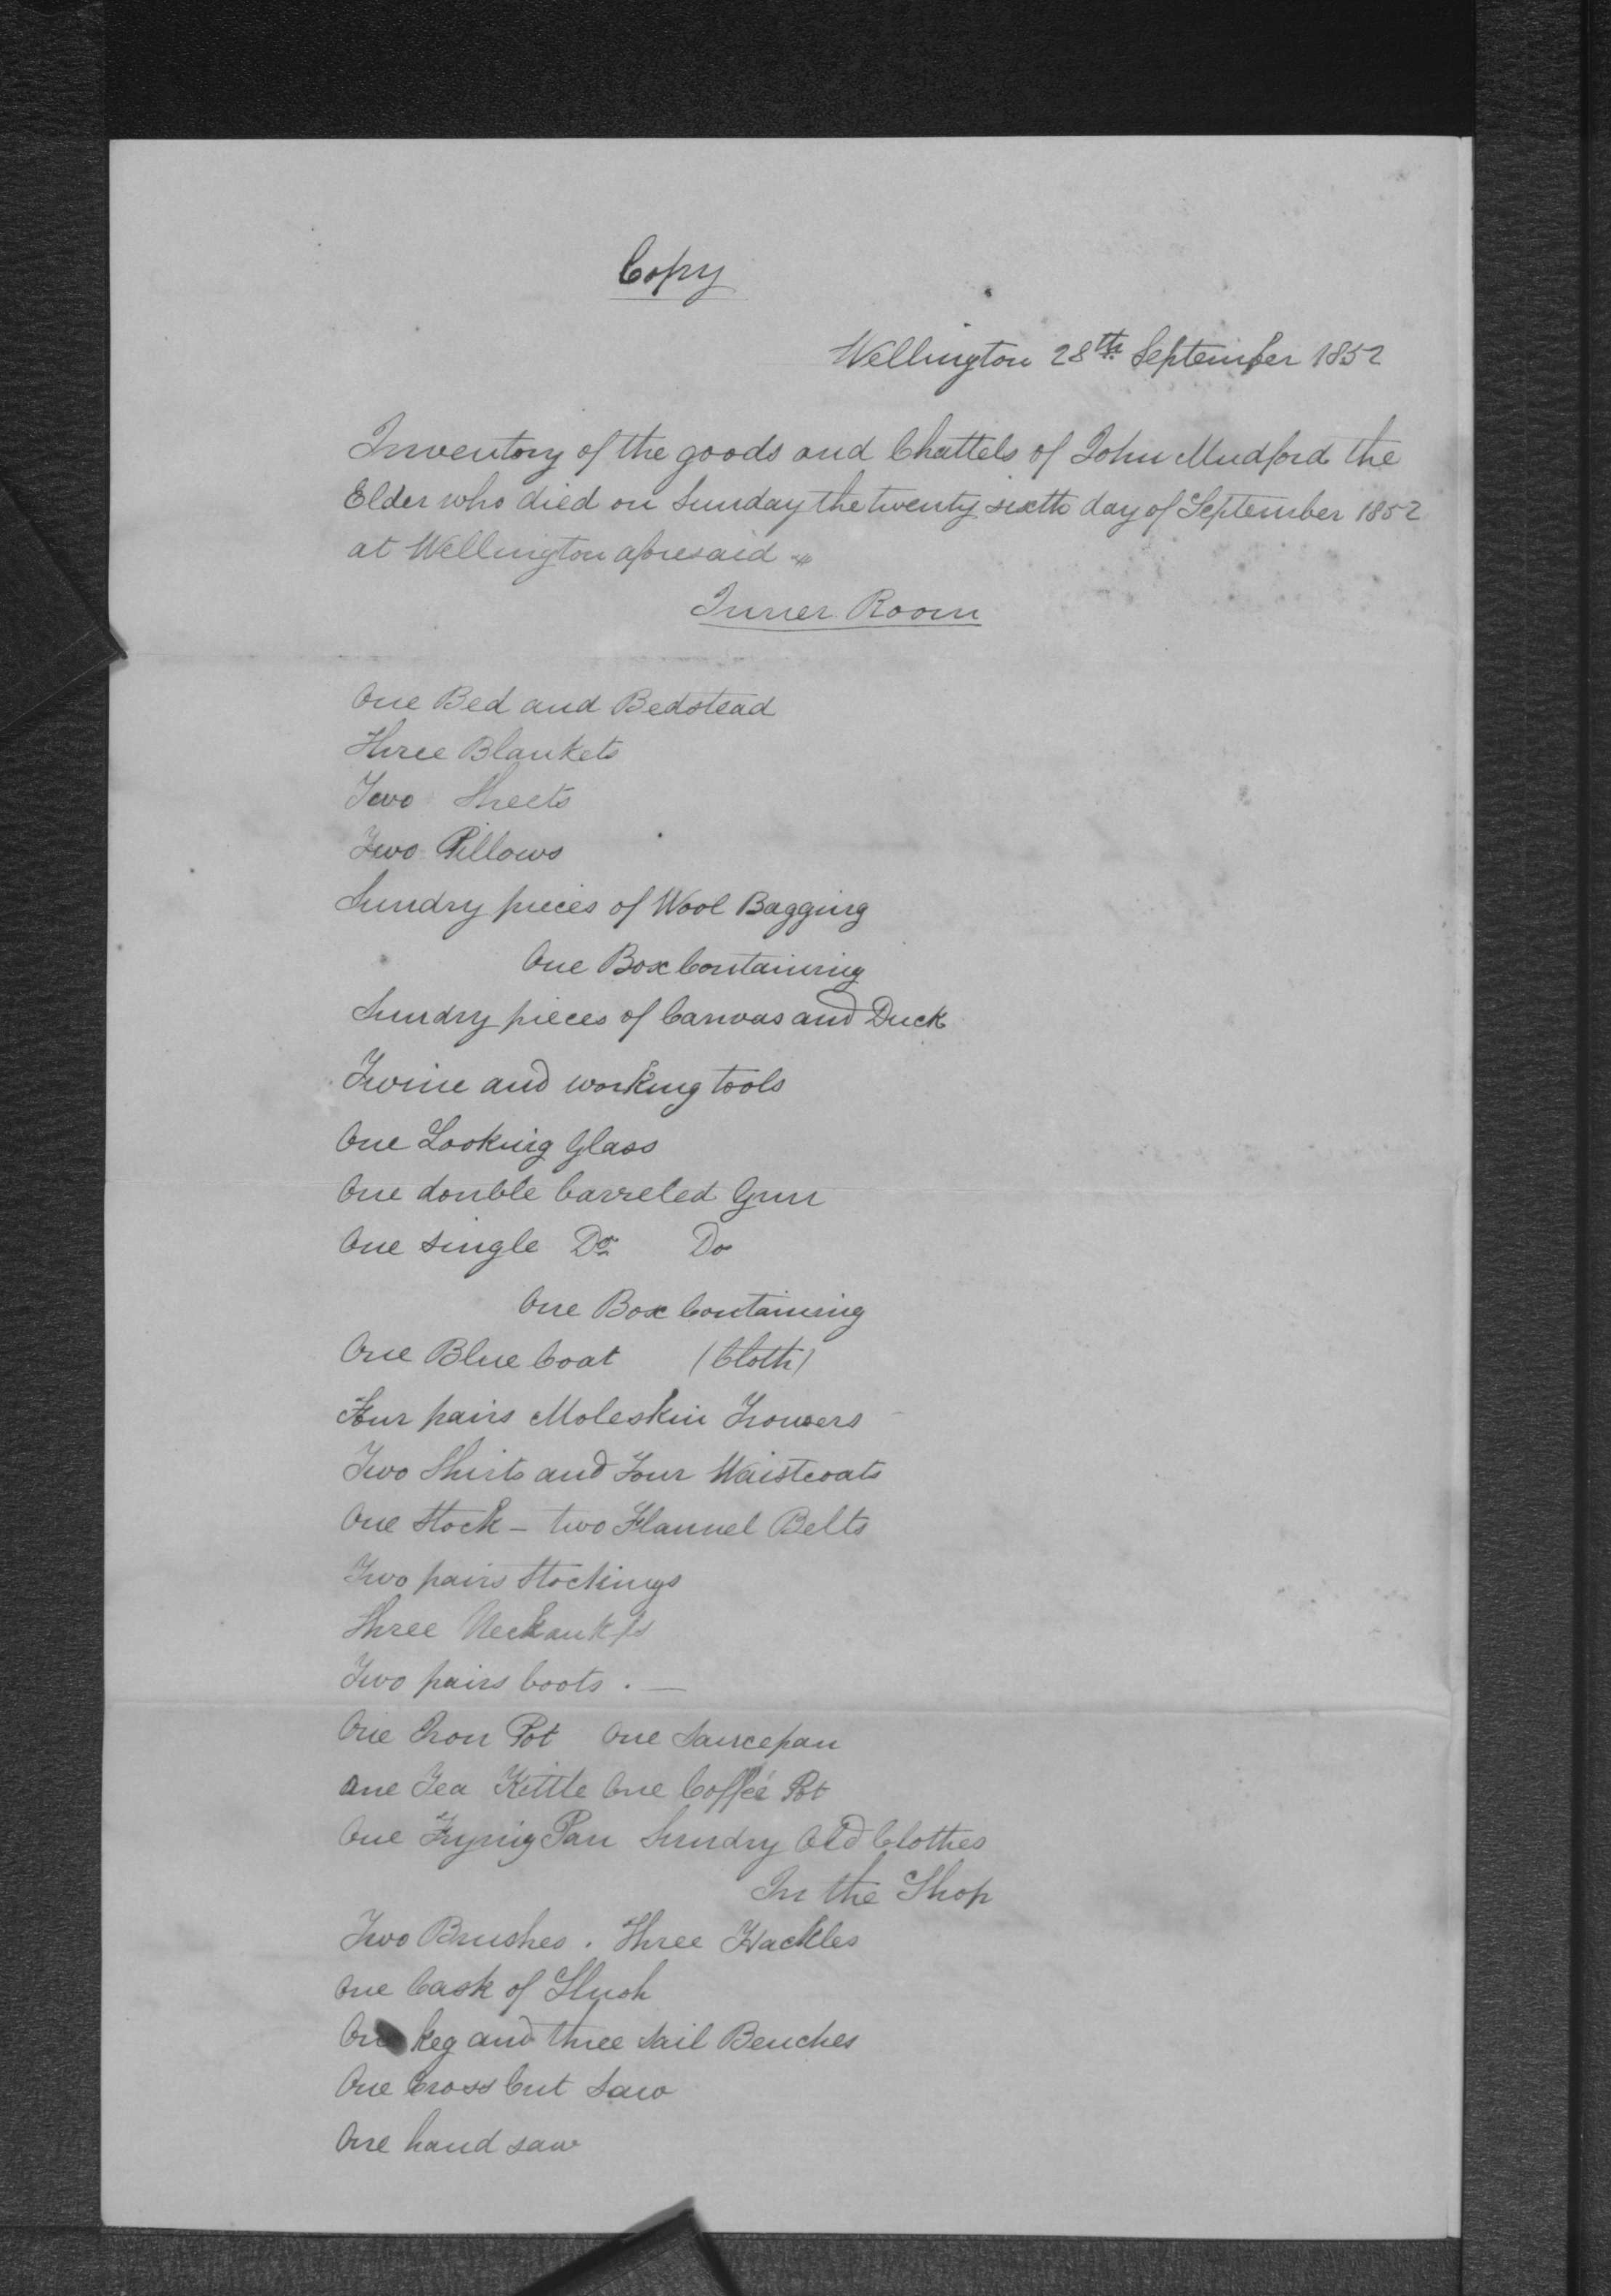 Copy
Wellington 28th September 1852
Inventory of the goods and Chattels of John Mudford the
Elder who died on Sunday the twenty sixth day of September 1852
at Wellington aforesaid
Inner Room
One Bed and Bedstead
Three Blankets
Two Sheets
Two Pillows
Sundry pieces of Wool Bagging
One Box Containing
Sundry pieces of Canvas and Duck
Twine and working tools
One Looking Glass
One double barreled Gun
One single Do Do
One Box Containing
One Blue Coat (Cloth)
Four pairs Moleskin Trowsers
Two Shirts and Four Waistcoats
One Stock - two Flannel Belts
Two pairs Stockings
Three
Two pairs boots . —
One Iron Pot One Saucepan
One Tea Kittle One Coffee Pot
One Frying Pan Sundry Old Clothes
In the Shop
Two Brushes . Three Hackles
One Cask of Slush
One keg and three Sail Benches
One Cross Cut Saw
One hand saw